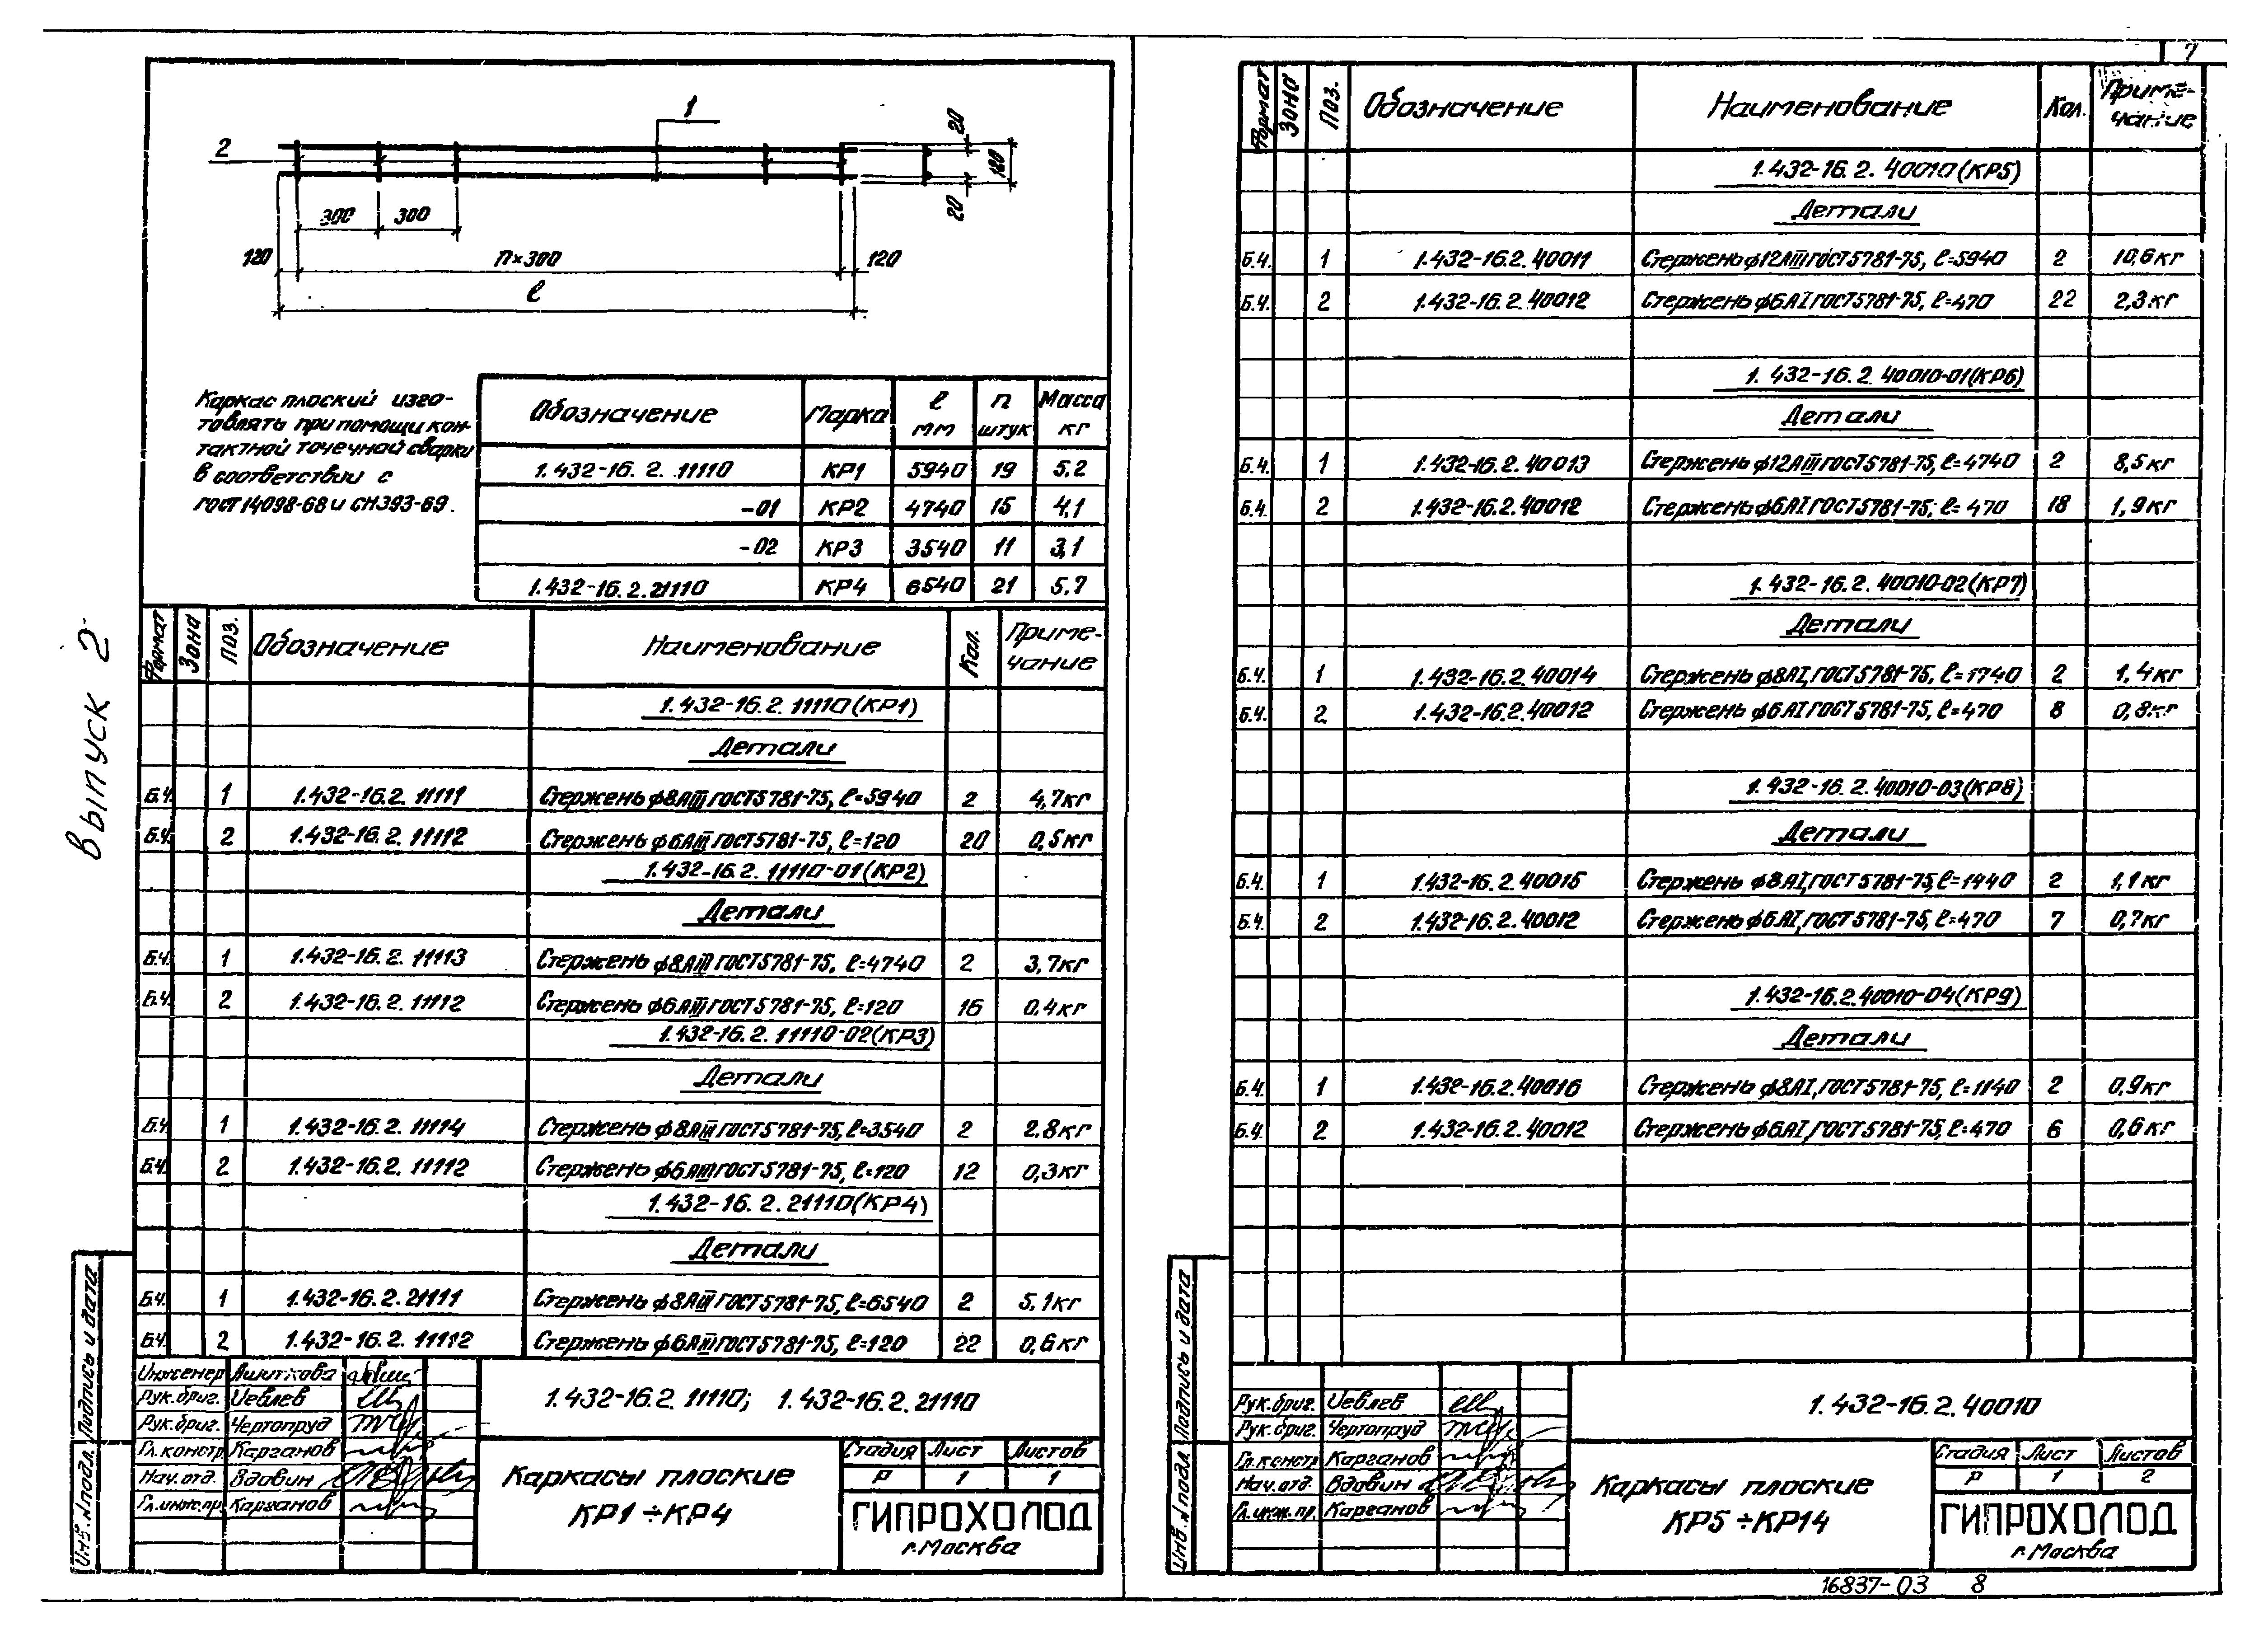 Выпуск 2
1
2
20
120
20
300 300
120 n×300 120
ℓ
Каркас плоский изго-
товлять при помощи кон-
тактной точечной сварки
в соответствии с
ГОСТ 14098-68 и СН393-69.
Обозначение Марка ℓ мм n штук Масса кг
1.432-16.2.11110 КР1 5940 19 5.2
-01 КР2 4740 15 4,1
-02 КР3 3540 11 3,1
1.432-16.2.21110 КР4 6540 21 5.7
Формат Зона Поз. Обозначение Наименование Кол. Приме-чание
1.432-16.2.11110(КР1)
Детали
Б.Ч. 1 1.432-16.2.11111 Стержень ϕ8АIII ГОСТ5781-75, ℓ=5940 2 4,7кг
Б.Ч. 2 1.432-16.2.11112 Стержень ϕ6АIII ГОСТ5781-75, ℓ=120 20 0,5кг
1.432-16.2.11110-01(КР2)
Детали
Б.Ч. 1 1.432-16.2.11113 Стержень ϕ8АIII ГОСТ5781-75, ℓ=4740 2 3,7кг
Б.Ч. 2 1.432-16.2.11112 Стержень ϕ6АIII ГОСТ5781-75, ℓ=120 16 0,4кг
1.432-16.2.11110-02(КР3)
Детали
Б.Ч. 1 1.432-16.2.11114 Стержень ϕ8АIII ГОСТ5781-75, ℓ=3540 2 2.8кг
Б.Ч. 2 1.432-16.2.11112 Стержень ϕ6АIII ГОСТ5781-75, ℓ=120 12 0,3кг
1.432-16.2.21110(КР4)
Детали
Б.Ч. 1 1.432-16.2.21111 Стержень ϕ8АIII ГОСТ5781-75, ℓ=6540 2 5,1кг
Б.Ч. 2 1.432-16.2.11112 Стержень ϕ6АIII ГОСТ5781-75, ℓ=120 22 0,6кг
Инженер
Рук.бриг. Иевлев
Рук.бриг. Чертопруд
Гл.констр. Карганов
Нач.отд. Вдовин
Гл.инж.пр. Карганов
1.432-16.2.11110; 1.432-16.2.21110
Каркасы плоские
КР1÷КР4
Стадия Лист Листов
Р 1 1
ГИПРОХОЛОД
г.Москва
Подпись и дата
Инв.№подл.
7
Формат Зона Поз. Обозначение Наименование Кол. Приме-чание
1.432-16.2.40010(КР5)
Детали
Б.Ч. 1 1.432-16.2.40011 Стержень ϕ12АIII ГОСТ5781-75, ℓ=5940 2 10,6кг
Б.Ч. 2 1.432-16.2.40012 Стержень ϕ6АI ГОСТ5781-75, ℓ=470 22 2,3кг
1.432-16.2.40010-01(КР6)
Детали
Б.Ч. 1 1.432-16.2.40013 Стержень ϕ12АIII ГОСТ5781-75, ℓ=4740 2 8,5кг
Б.Ч. 2 1.432-16.2.40012 Стержень ϕ6АI ГОСТ5781-75, ℓ=470 18 1,9кг
1.432-16.2.40010-02(КР7)
Детали
Б.Ч. 1 1.432-16.2.40014 Стержень ϕ8АI, ГОСТ5781-75, ℓ=1740 2 1,4кг
Б.Ч. 2 1.432-16.2.40012 Стержень ϕ6АI ГОСТ5781-75, ℓ=470 8 0,8кг
1.432-16.2.40010-03(КР8)
Детали
Б.Ч. 1 1.432-16.2.40015 Стержень ϕ8АI, ГОСТ5781-75, ℓ=1440 2 1,1кг
Б.Ч. 2 1.432-16.2.40012 Стержень ϕ6АI, ГОСТ5781-75, ℓ=470 7 0,7кг
1.432-16.2.40010-04(КР9)
Детали
Б.Ч. 1 1.432-16.2.40016 Стержень ϕ8АI, ГОСТ5781-75, ℓ=1140 2 0,9кг
Б.Ч. 2 1.432-16.2.40012 Стержень ϕ6АI, ГОСТ5781-75, ℓ=470 6 0,6кг
Рук.бриг. Иевлев
Рук.бриг. Чертопруд
Гл.констр. Карганов
Нач.отд. Вдовин
Гл.инж.пр. Карганов
1.432-16.2.40010
Каркасы плоские
КР5÷КР14
Стадия Лист Листов
Р 1 2
ГИПРОХОЛОД
г.Москва
Подпись и дата
Инв.№подл.
16837-03 8